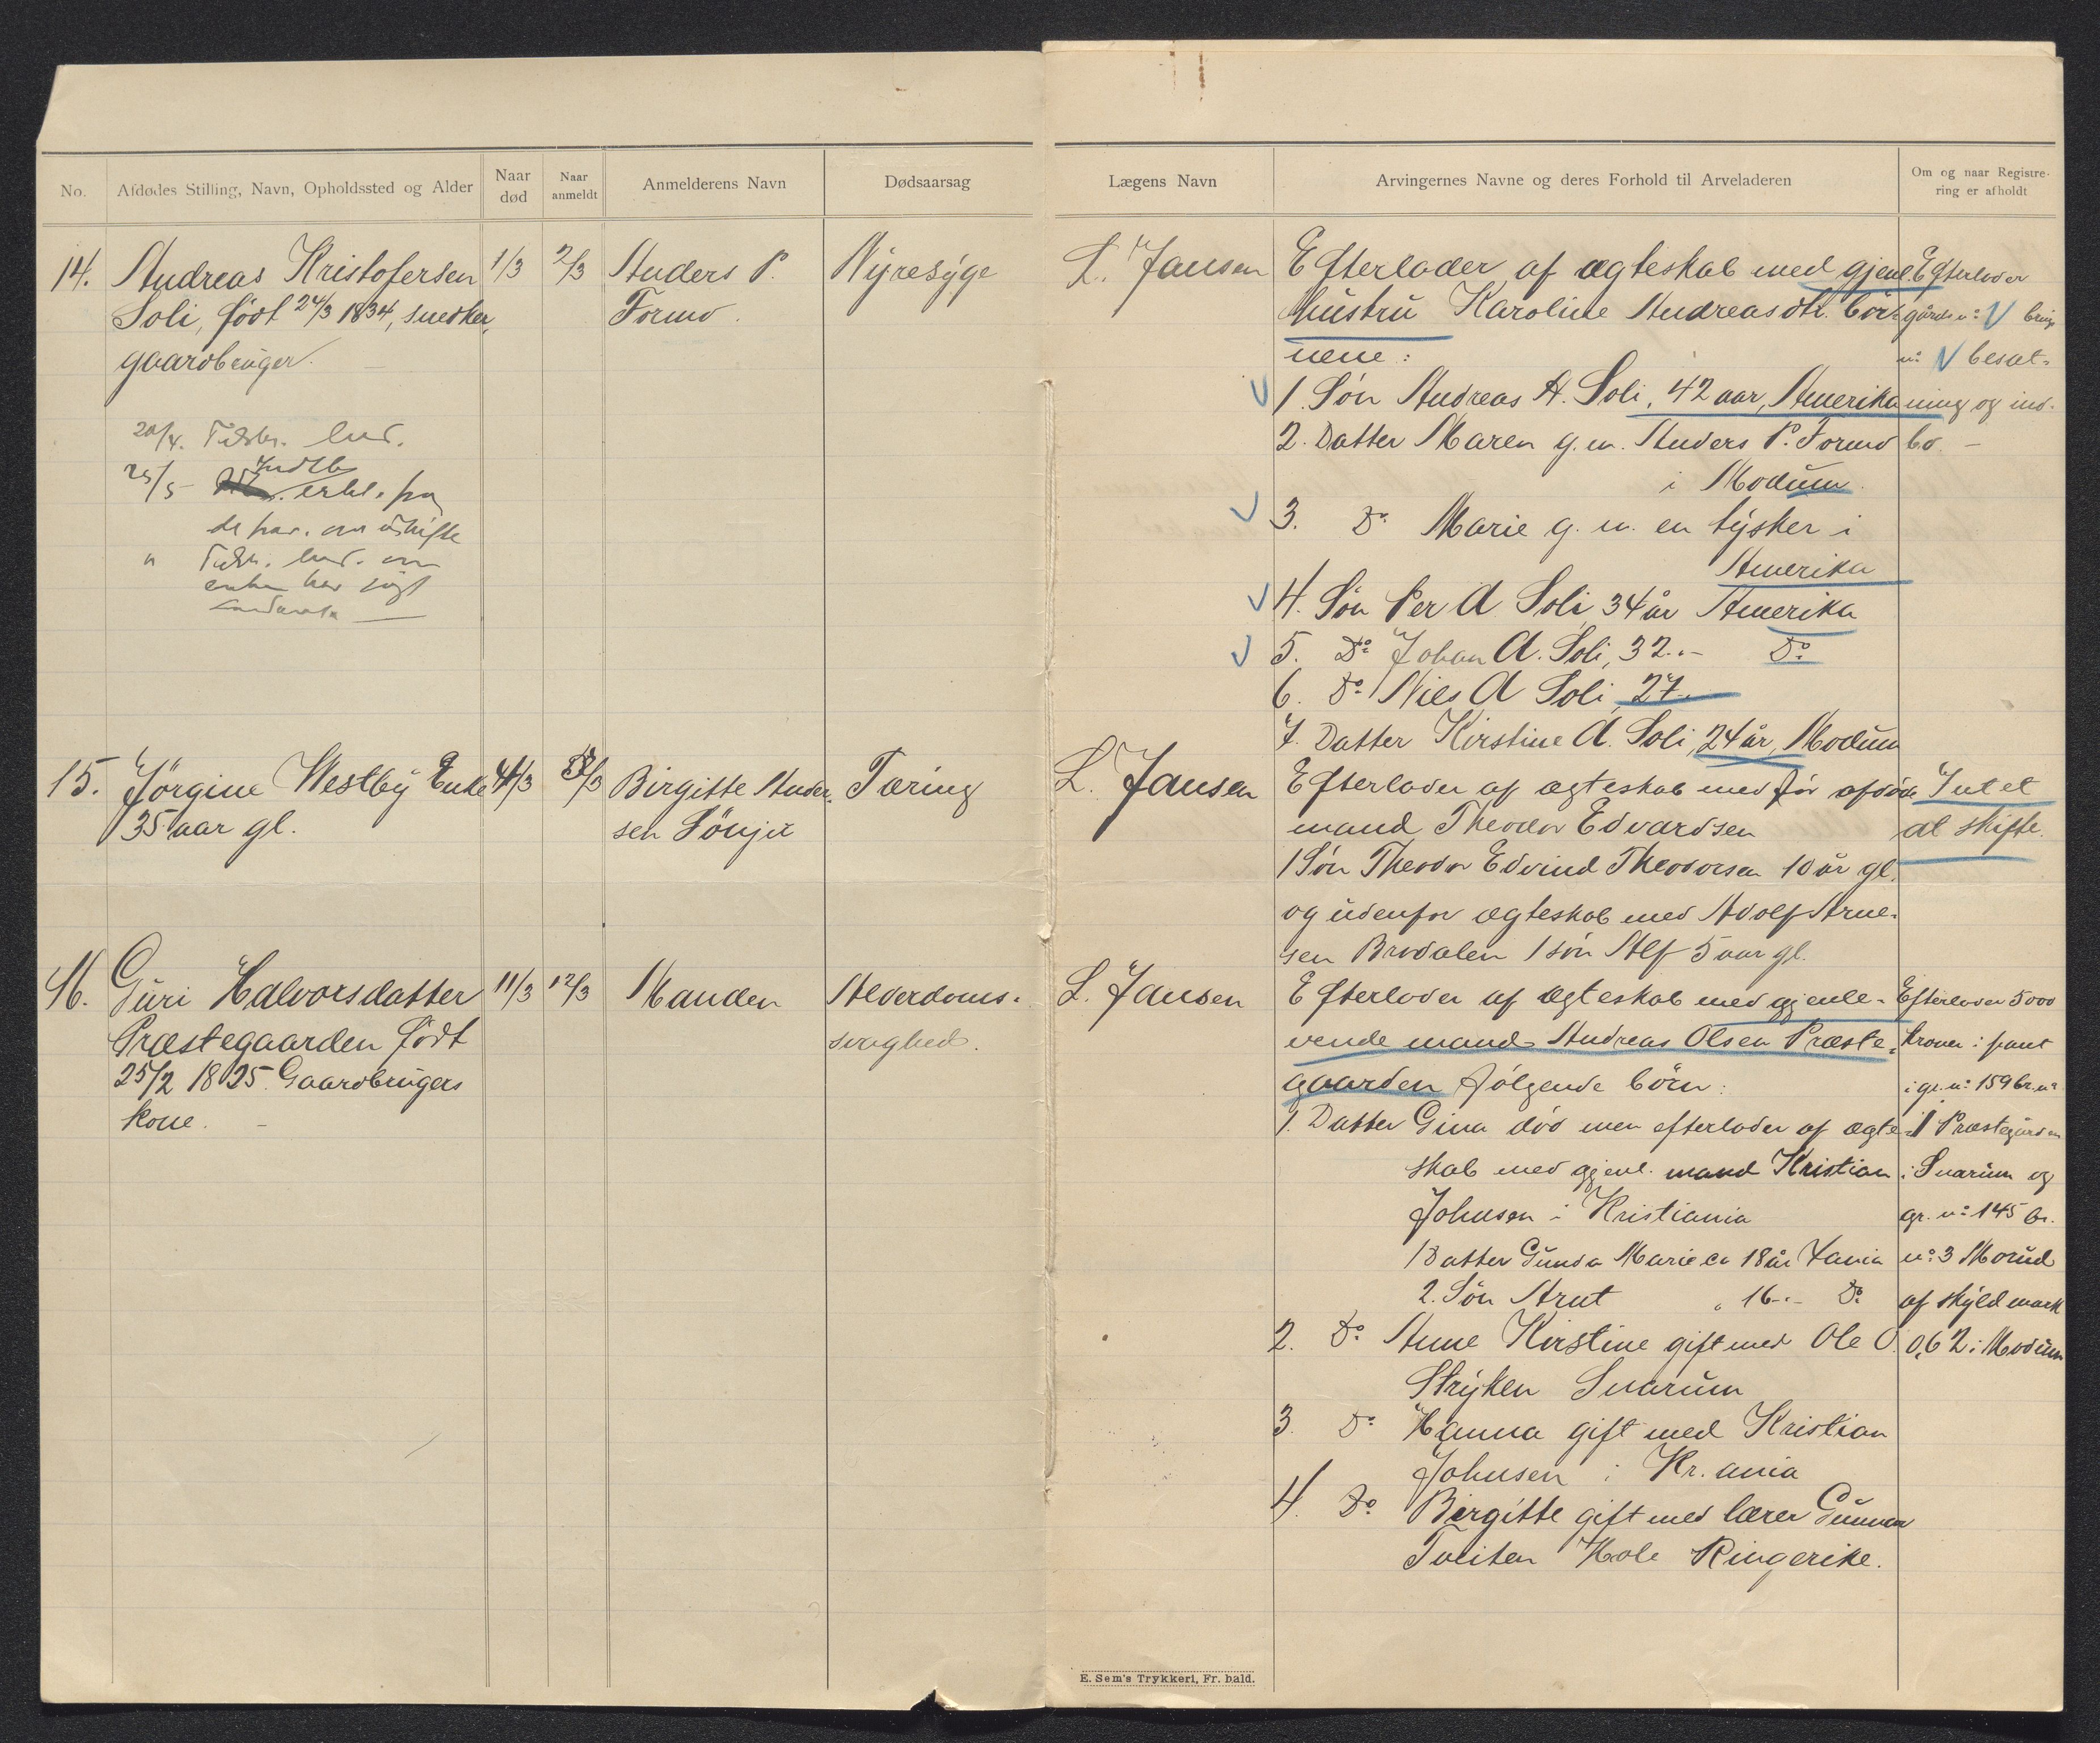 No.
Afdødes Stilling, Navn, Opholdssted og Alder
Naar død
Naar anmeldt
Anmelderens Navn
Dødsaarsag
Lægens Navn
Arvingernes Navne og deres Forhold til Arveladeren
Om og naar Registre-
ring er afholdt
14. Andreas Kristofersen 1/3 2/3 Anders P. Nyresyge
Soli, født 24/3 1834, snedker, Formo.
gaardbruger.
20/4. Tilskr. lensm.
25/5
erkl. fra
de har. om uskifte
" Tilskr. om
enken har
L. Jansen
Efterlader af ægteskab med gjenl.
hustru Karoline Andreasdtr. bör-
nene:
1. Sön Andreas A. Soli, 42 aar, Amerika
2. Datter Maren g.m. Anders P. Formo
i Modum.
3. Do Marie g.m. en tysker i
Amerika
4. Sön Per A Soli, 34 år Amerika
5. Do Johan A. Soli, 32.- Do
6. Do Nils A Soli, 27.-
7. Datter Kirstine A. Soli, 24 år, Modum
Efterlader
gårds no: V brugs
no V besæt-
ning og ind-
bo. -
15. Jørgine Westby Enke 4/3 /3 Birgitte Ander- Tæring
35 aar gl. sen Sönju
L. Jansen
Efterlader af ægteskab med för afdöde
mand Theodor Edvardsen
1 Sön Theodor Edvind Theodorsen 10 år gl.
og udenfor ægteskab med Adolf Arne-
sen Brodalen 1 sön Alf 5 aar gl.
Intet
at skifte.
16. Guri Halvorsdatter 11/3 12/3 Manden Alderdoms-
Præstegaarden født svaghed.
25/2 1825. Gaardbrugers
kone. -
L. Jansen
Efterlader af ægteskab med gjenle-
vende mand Andreas Olsen Præste-
gaarden følgende börn:
1. Datter Gina död men efterlader af ægte-
skab med gjenl. mand Kristian
Johnsen i Kristiania
1 Datter Gunda Marie ca 18 år Xania
2. Sön Arut " 16.- Do
2. Do Anne Kirstine gift med Ole O.
Stryken Snarum
3. Do Hanna gift med Kristian
Johnsen i Kr.ania
4. Do Birgitte gift med lærer Gunnar
Tveiten Hole Ringerike.
Efterlader 5000
kroner i pant
i gr. no: 159 br. no
1 Præstegården
i Snarum og
gr. no: 145 br.
no: 3 Morud
af skyld mark
0,62 i Modum
E. Sem's Trykkeri, Fr. hald.